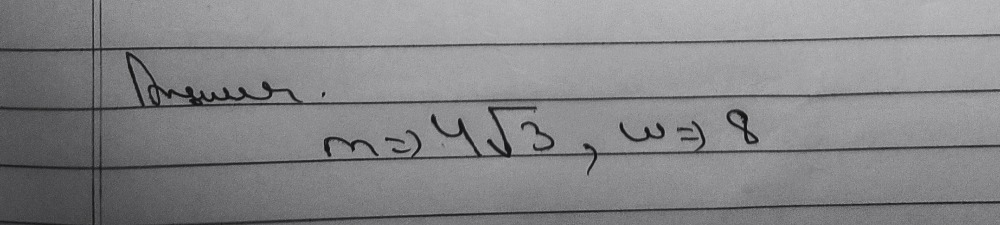 Answer.
m⇒ 4√3, w⇒ 8